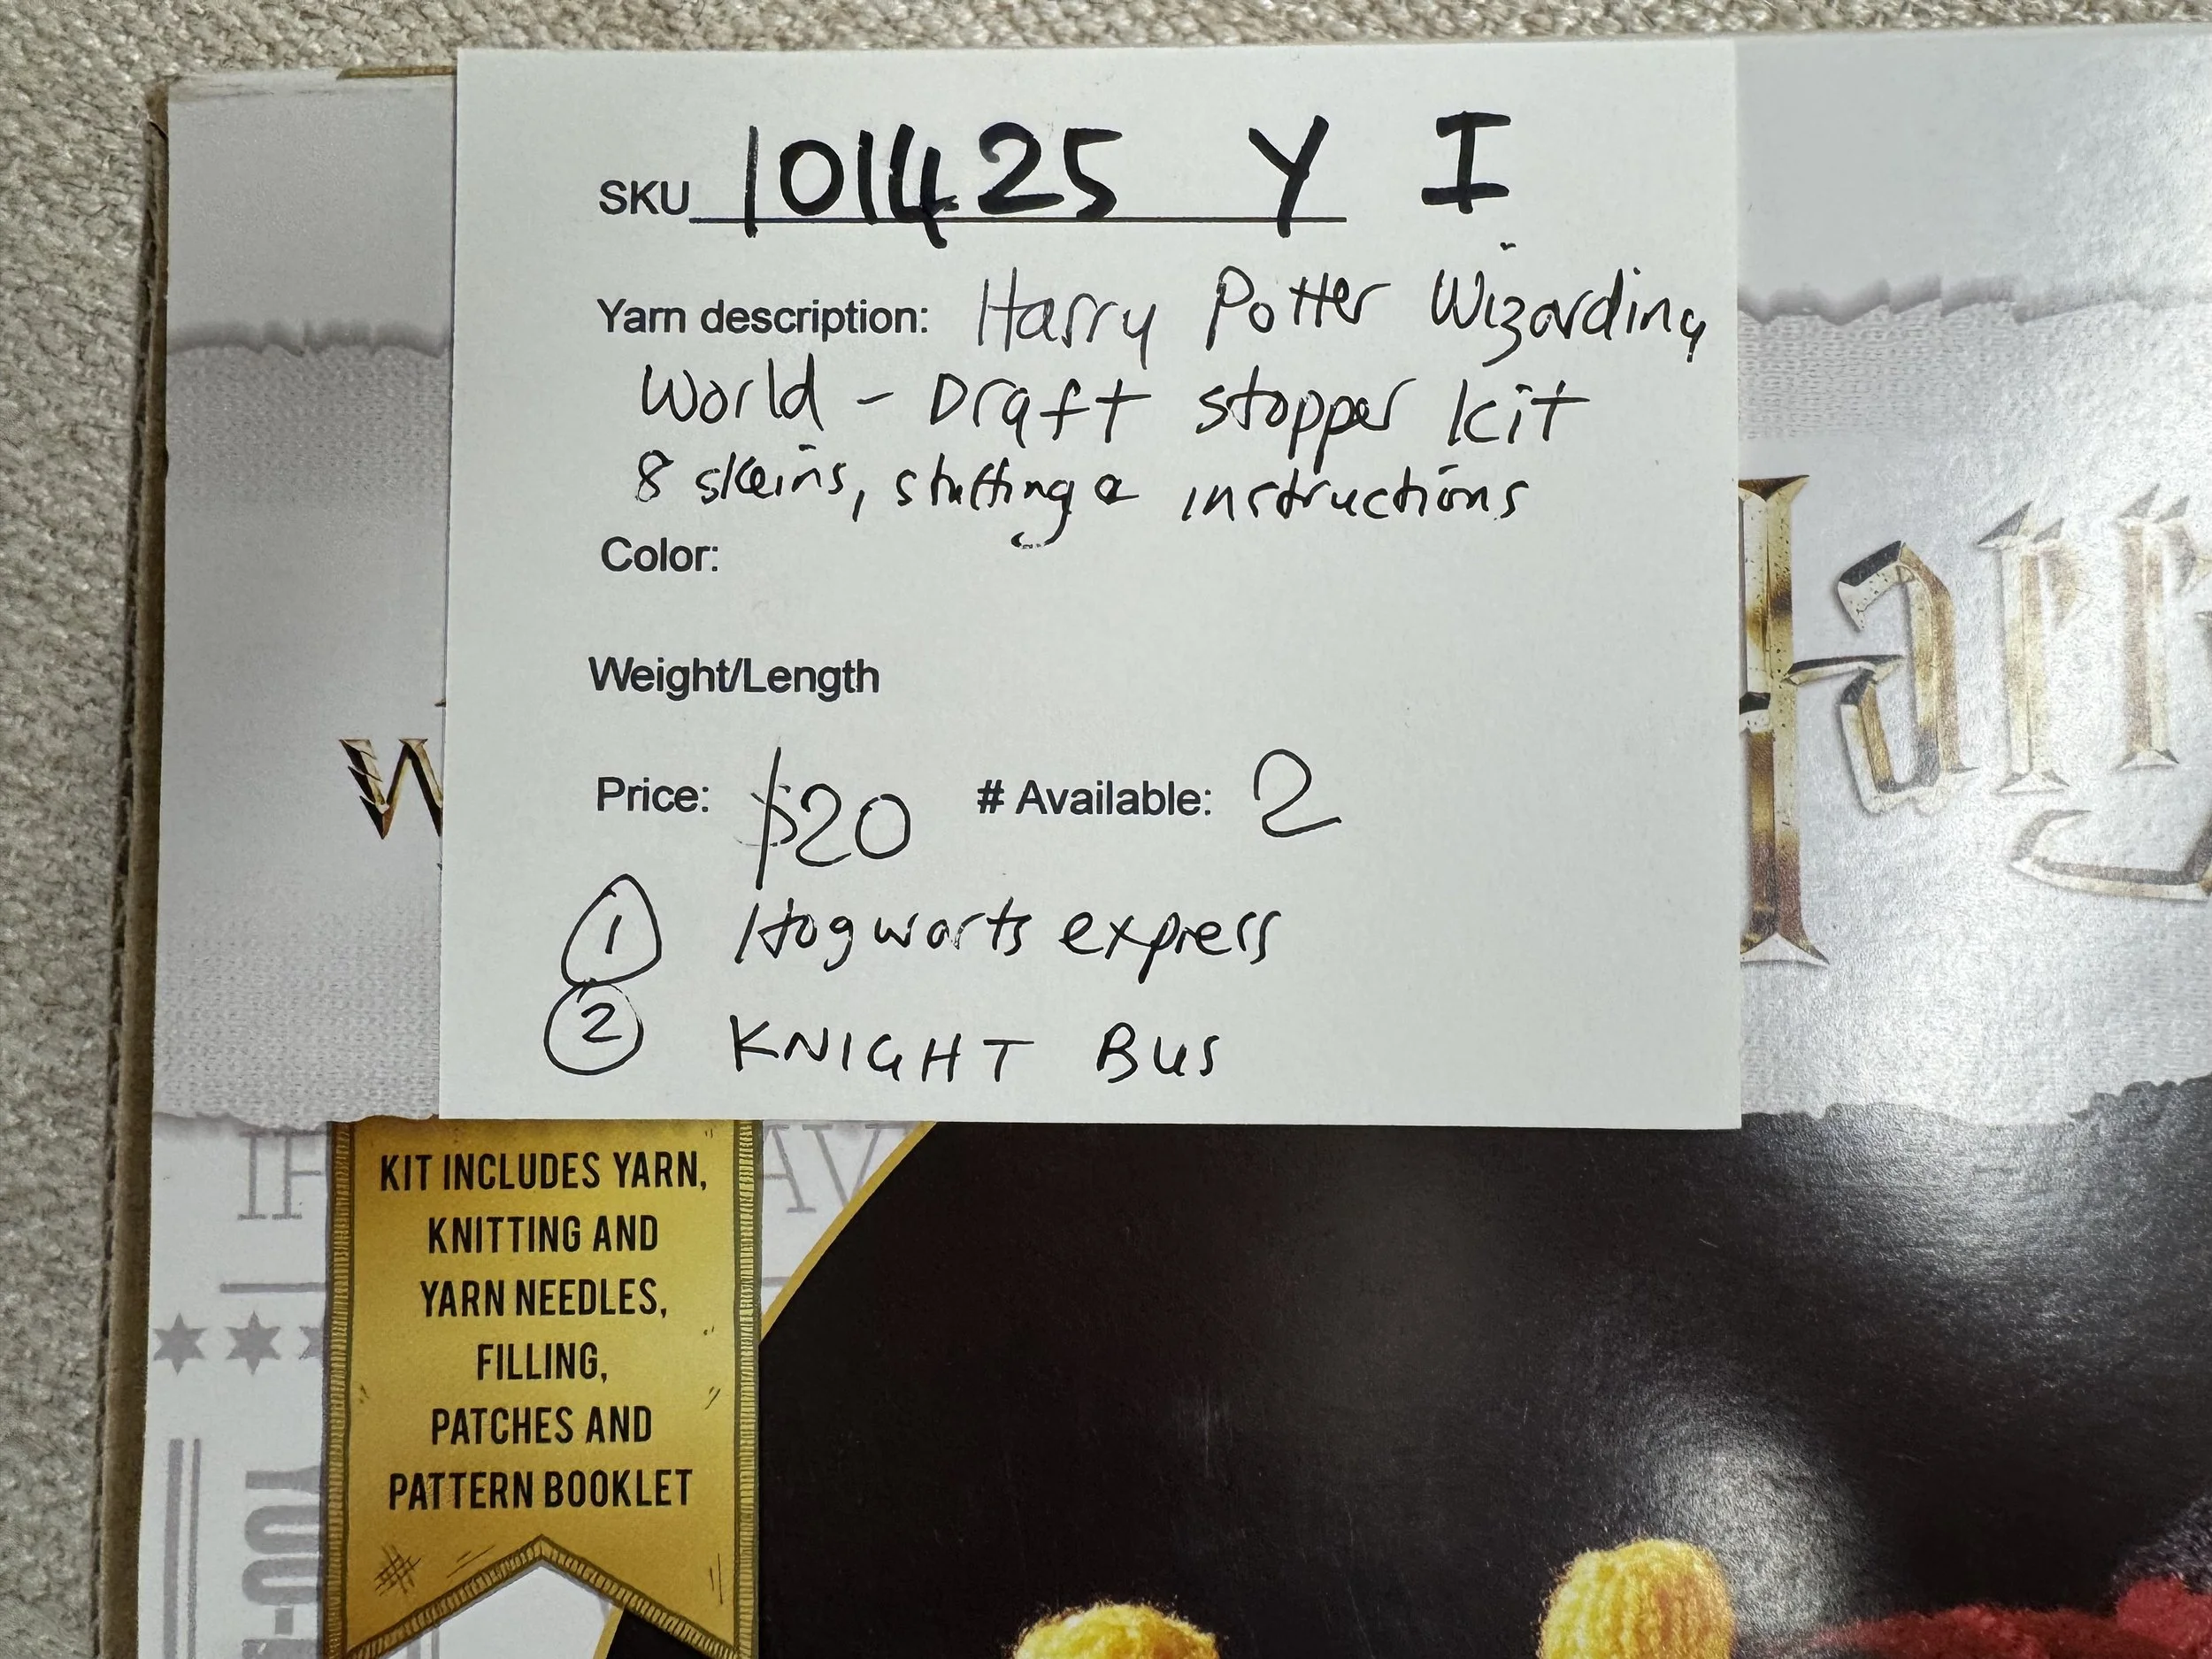 SKU 101425 Y I
Yarn description: Harry Potter Wizarding
World - Draft stopper kit
8 skeins, stuffing & instructions
Color:
Weight/Length
Price: $20 # Available: 2
1 Hogwarts express
2 KNIGHT BUS
Harry
W
KIT INCLUDES YARN,
KNITTING AND
YARN NEEDLES,
FILLING,
PATCHES AND
PATTERN BOOKLET
YOU-